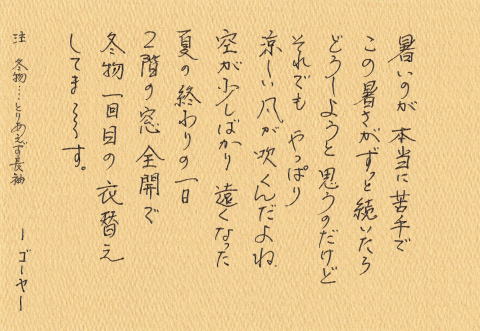 暑いのが 本当に 苦手で
この暑さがずっと続いたら
どうしようと 思うのだけど
それでも やっぱり
涼しい風が吹くんだよね
空が少しばかり 遠くなった
夏の終わりの一日
2階の窓 全開で
冬物 一回目の 衣替え
してま〜〜す。
注 冬物…とりあえず長袖
ー ゴーヤー